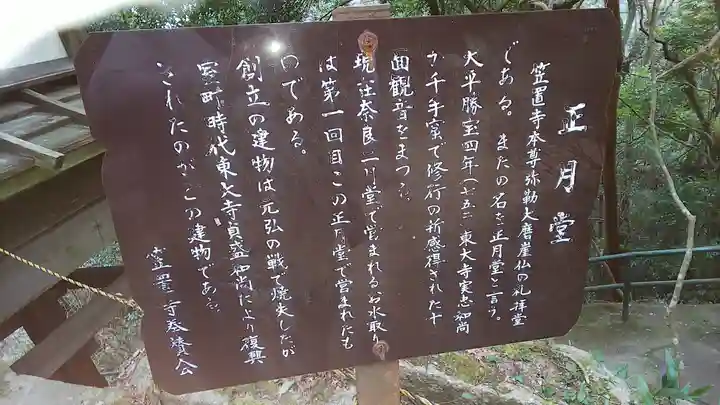 正月堂
笠置寺本尊弥勒大磨崖仏の礼拝堂
である。またの名を正月堂と言う。
天平勝宝四年(七五二)東大寺実忠和尚
が千手窟で修行の折感得された十
一面観音をまつる。
現在奈良二月堂で営まれるお水取り
は第一回目この正月堂で営まれたも
のである。
創立の建物は元弘の戦で焼失したが
室町時代東大寺貞盛和尚により復興
されたのがこの建物である。
笠置寺奉賛会